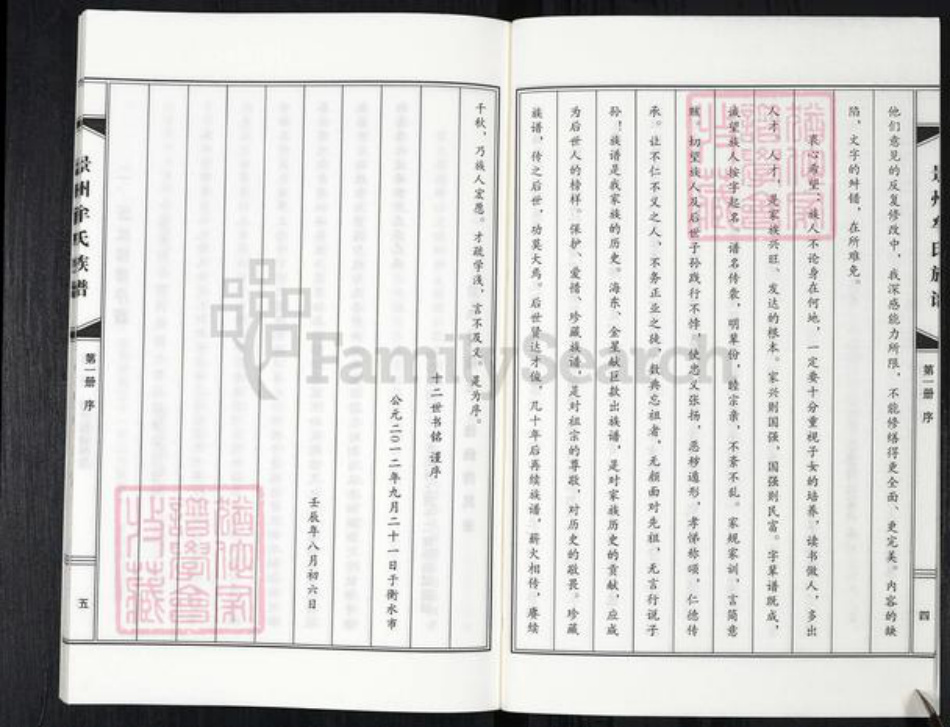 他们意见的反复修改中，我深感能力所限，不能修缮得更全面、更完美。内容的缺
陷，文字的舛错，在所难免。
衷心希望：族人不论身在何地，一定要十分重视子女的培养，读书做人，多出
人才。人才，是家族兴旺、发达的根本。家兴则国强，国强则民富。字辈谱既成，
诚望族人按字起名，谱名传袭，明辈份，睦宗亲，不紊不乱。家规家训，言简意
赅，切望族人及后世子孙践行不悖。使忠义张扬，恶秽遁形，孝悌称颂，仁德传
承。让不仁不义之人、不务正业之徒、数典忘祖者，无颜面对先祖，无言行说子
孙！族谱是我家族的历史。海东、金星献巨款出族谱，是对家族历史的贡献，应成
为后世人的榜样。保护、爱惜、珍藏族谱，是对祖宗的尊敬，对历史的敬畏。珍藏
族谱，传之后世，功莫大焉。后世贤达才俊，几十年后再续族谱，薪火相传，赓续
第一册 序
四
千秋，乃族人宏愿。才疏学浅，言不及义。是为序。
十二世书铭 谨序
公元二〇一二年九月二十一日于衡水市
壬辰年八月初六日
氏族谱
第一册 序
五
FamilySearch